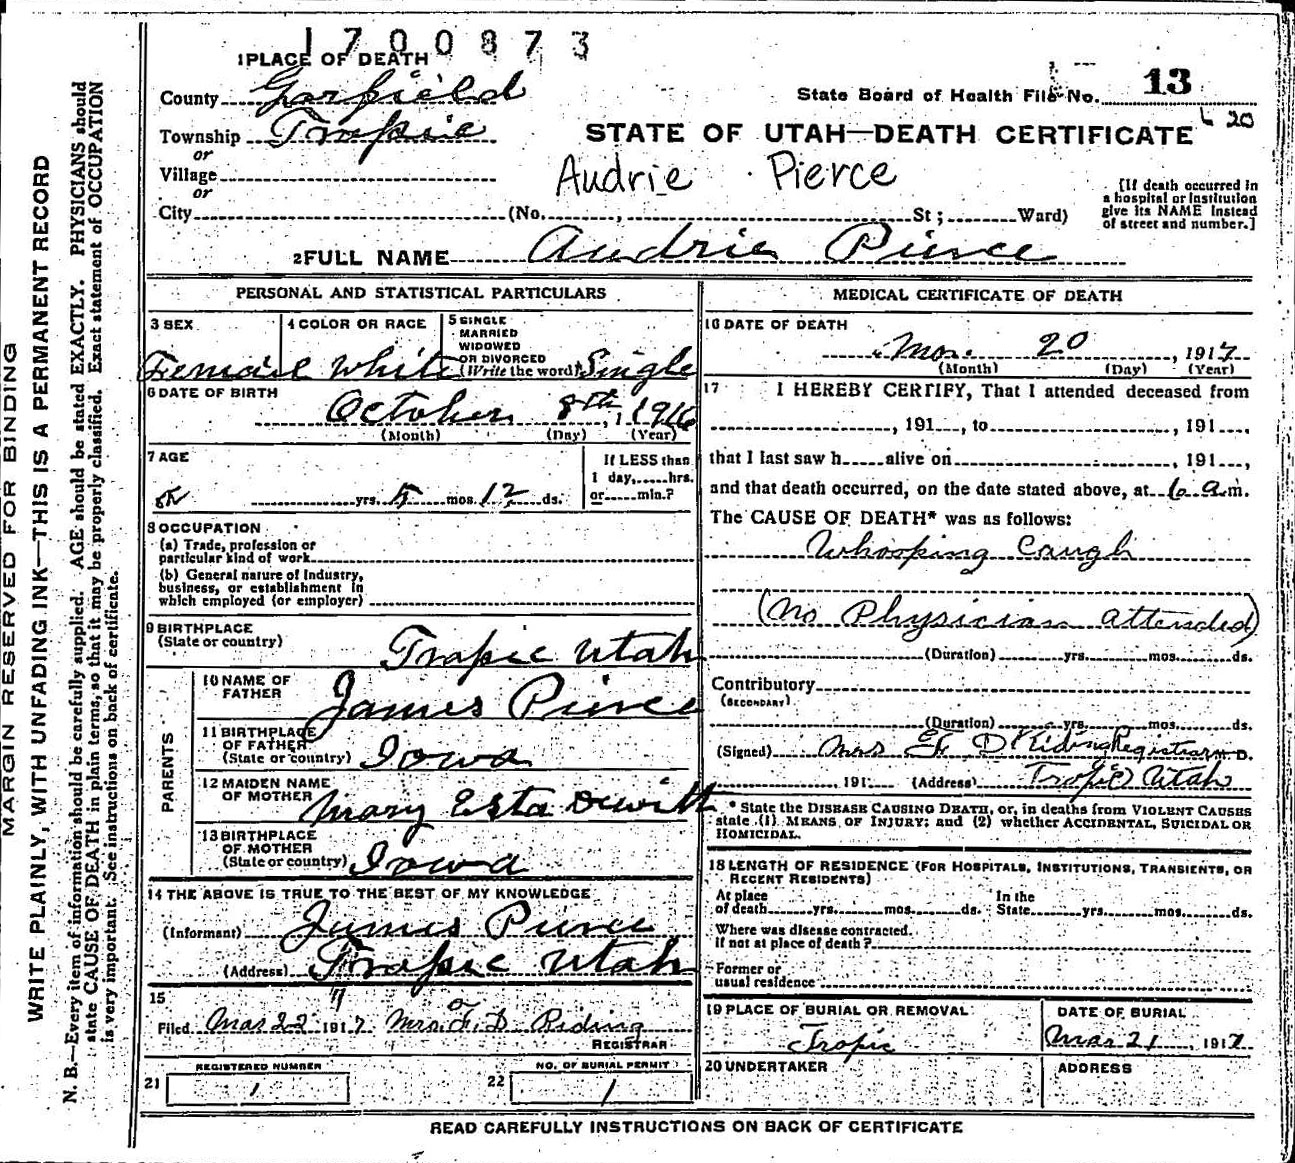 1700873
1 PLACE OF DEATH
County Garfield
Township Tropic
or
Village
or
City (No. , St; Ward)
State Board of Health File No. 13
20
STATE OF UTAH—DEATH CERTIFICATE
Audrie Pierce
[If death occurred in
a hospital or institution
give its NAME instead
of street and number.]
2 FULL NAME Audrie Pierce
PERSONAL AND STATISTICAL PARTICULARS
3 SEX
Female
4 COLOR OR RACE
White
5 SINGLE
MARRIED
WIDOWED
OR DIVORCED
(Write the word) Single
6 DATE OF BIRTH
October 8th, 1916
(Month) (Day) (Year)
7 AGE
yrs. 5 mos. 12 ds.
If LESS than
1 day, hrs.
or min.?
8 OCCUPATION
(a) Trade, profession or
particular kind of work
(b) General nature of Industry,
business, or establishment in
which employed (or employer)
9 BIRTHPLACE
(State or country)
Tropic Utah
PARENTS
10 NAME OF
FATHER
James Pierce
11 BIRTHPLACE
OF FATHER
(State or country) Iowa
12 MAIDEN NAME
OF MOTHER
Mary Esta Dewitt
13 BIRTHPLACE
OF MOTHER
(State or country) Iowa
14 THE ABOVE IS TRUE TO THE BEST OF MY KNOWLEDGE
(Informant) James Pierce
(Address) Tropic Utah
15
Filed Mar 22 1917 Mrs. F. D Riding
REGISTRAR
21 REGISTERED NUMBER
1
22 NO. OF BURIAL PERMIT
1
MEDICAL CERTIFICATE OF DEATH
16 DATE OF DEATH
Mar. 20, 1917
(Month) (Day) (Year)
17 I HEREBY CERTIFY, That I attended deceased from
, 191 , to , 191 ,
that I last saw h alive on , 191 ,
and that death occurred, on the date stated above, at 6 a m.
The CAUSE OF DEATH* was as follows:
Whooping Caugh
(No Physician attended)
(Duration) yrs. mos. ds.
Contributory
(SECONDARY)
(Duration) yrs. mos. ds.
(Signed) Mrs F. D Riding Registrar M.D.
, 191 (Address) Tropic Utah
* State the DISEASE CAUSING DEATH, or, in deaths from VIOLENT CAUSES
state (1) MEANS OF INJURY; and (2) whether ACCIDENTAL, SUICIDAL OR
HOMICIDAL.
18 LENGTH OF RESIDENCE (FOR HOSPITALS, INSTITUTIONS, TRANSIENTS, OR
RECENT RESIDENTS)
At place
of death yrs. mos. ds.
In the
State yrs. mos. ds.
Where was disease contracted,
If not at place of death?
Former or
usual residence
19 PLACE OF BURIAL OR REMOVAL
Tropic
DATE OF BURIAL
Mar 21, 1917
20 UNDERTAKER
ADDRESS
READ CAREFULLY INSTRUCTIONS ON BACK OF CERTIFICATE
MARGIN RESERVED FOR BINDING
WRITE PLAINLY, WITH UNFADING INK—THIS IS A PERMANENT RECORD
N. B.—Every item of information should be carefully supplied. AGE should be stated EXACTLY. PHYSICIANS should
state CAUSE OF DEATH in plain terms, so that it may be properly classified. Exact statement of OCCUPATION
is very important. See instructions on back of certificate.